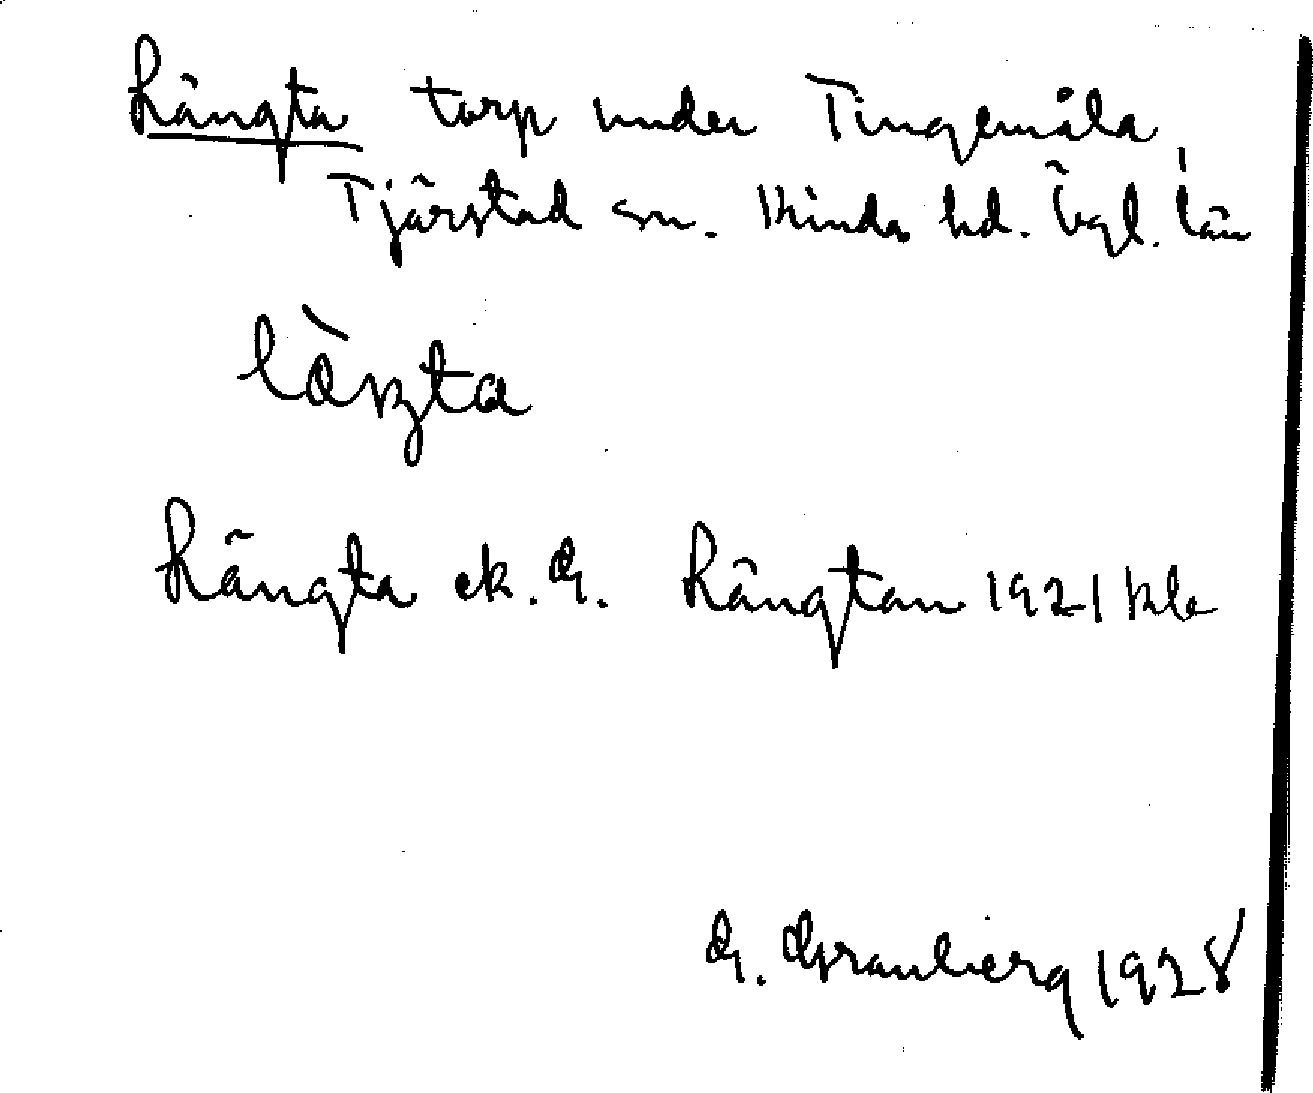 Längta torp under Tingemåla,
Tjärstad sn. Kinda hd. Ögl. län
Längta ek. G. Längtan 1921 kle
G. Granberg 1928